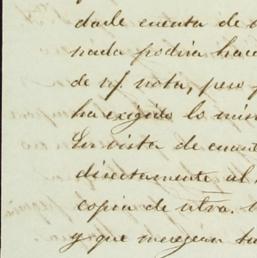 darle cuenta de
nada podria hace
de vf. nota, pero
ha exigido lo mis
En vista de cuant
directamente al
copia de vtra.
y que merezcan su